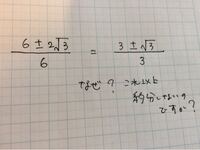 6 ± 2√3 / 6 = 3 ± √3 / 3
なぜ? これ以上
約分しないの
ですか?